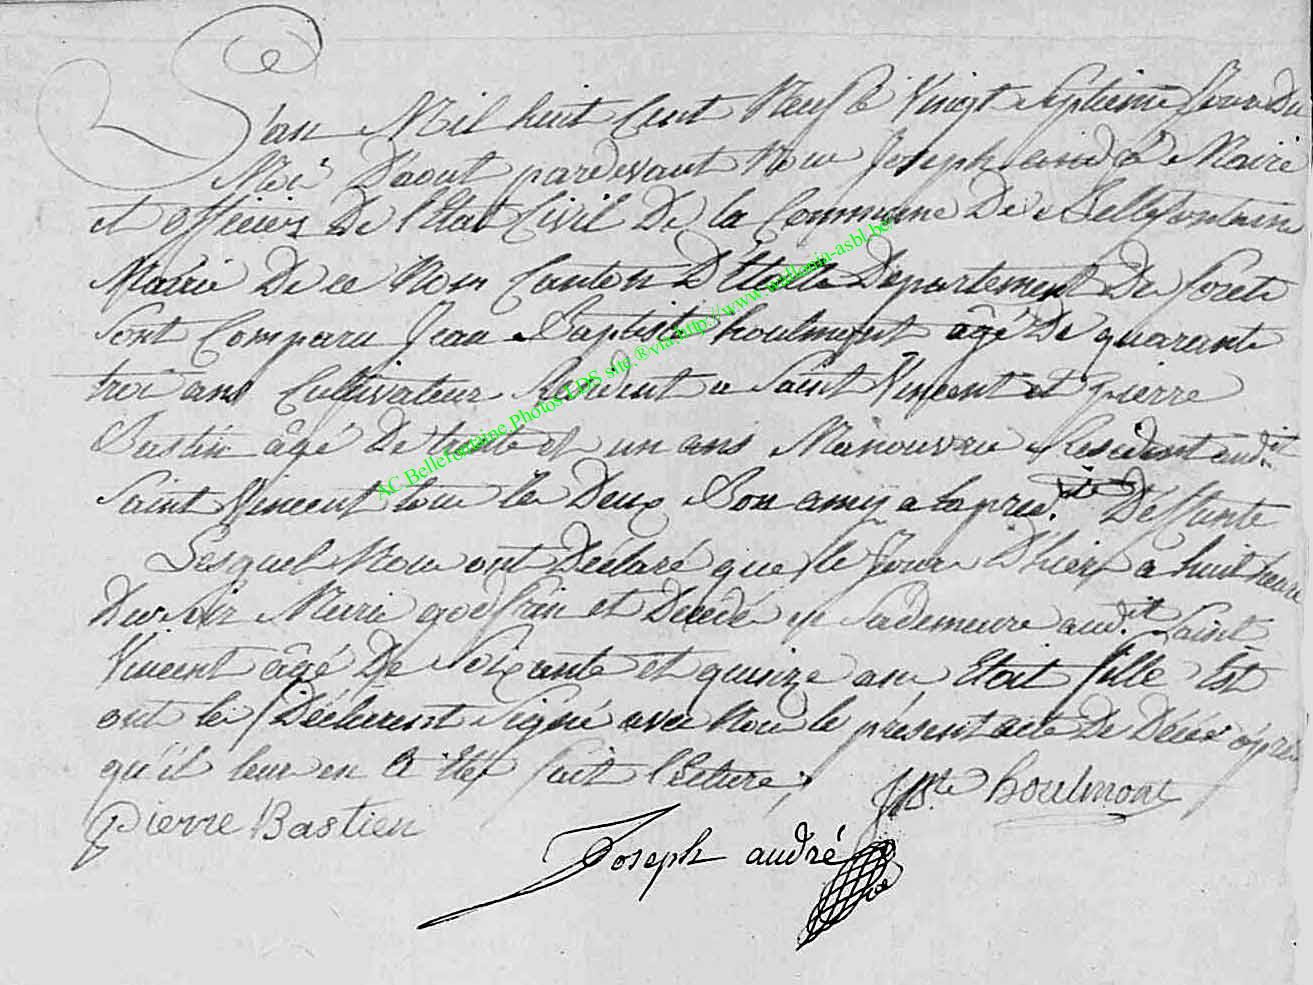 L'an Mil huit Cent Neuf le Vingt Septieme Jour du
Moi D'aout pardevant Nou Joseph andré Maire
et officier De l'Etat Civil De la Commune De Bellefontaine
Mairie De ce Nom Canton D'Etalle Departement De forets
Sont Comparu Jean Baptiste houlmont âgé De quarante
troi ans Cultivateur Résident a Saint Vincent et pierre
Bastin âgé De trente et un ans Manouvrie Résident aud.it
Saint Vincent tou le Deux Bon amy a la pré. Deffunte
Lesquel Nou ont Declaré que le Jour D'hier a huit heure
Du soir Marie godfrin et Décédé en Sa demeure aud.it Saint
Vincent âgé De Soixante et quinze an Etoit fille Est
ont les Déclarent Signé avec Nou le présent acte De Décé après
qu'il leur en A Eté fait lecture,
JBte houlmont
pierre Bastien
Joseph andré
AC.Bellefontaine Photos EDS site.®via.http://www.wallonia-asbl.be/